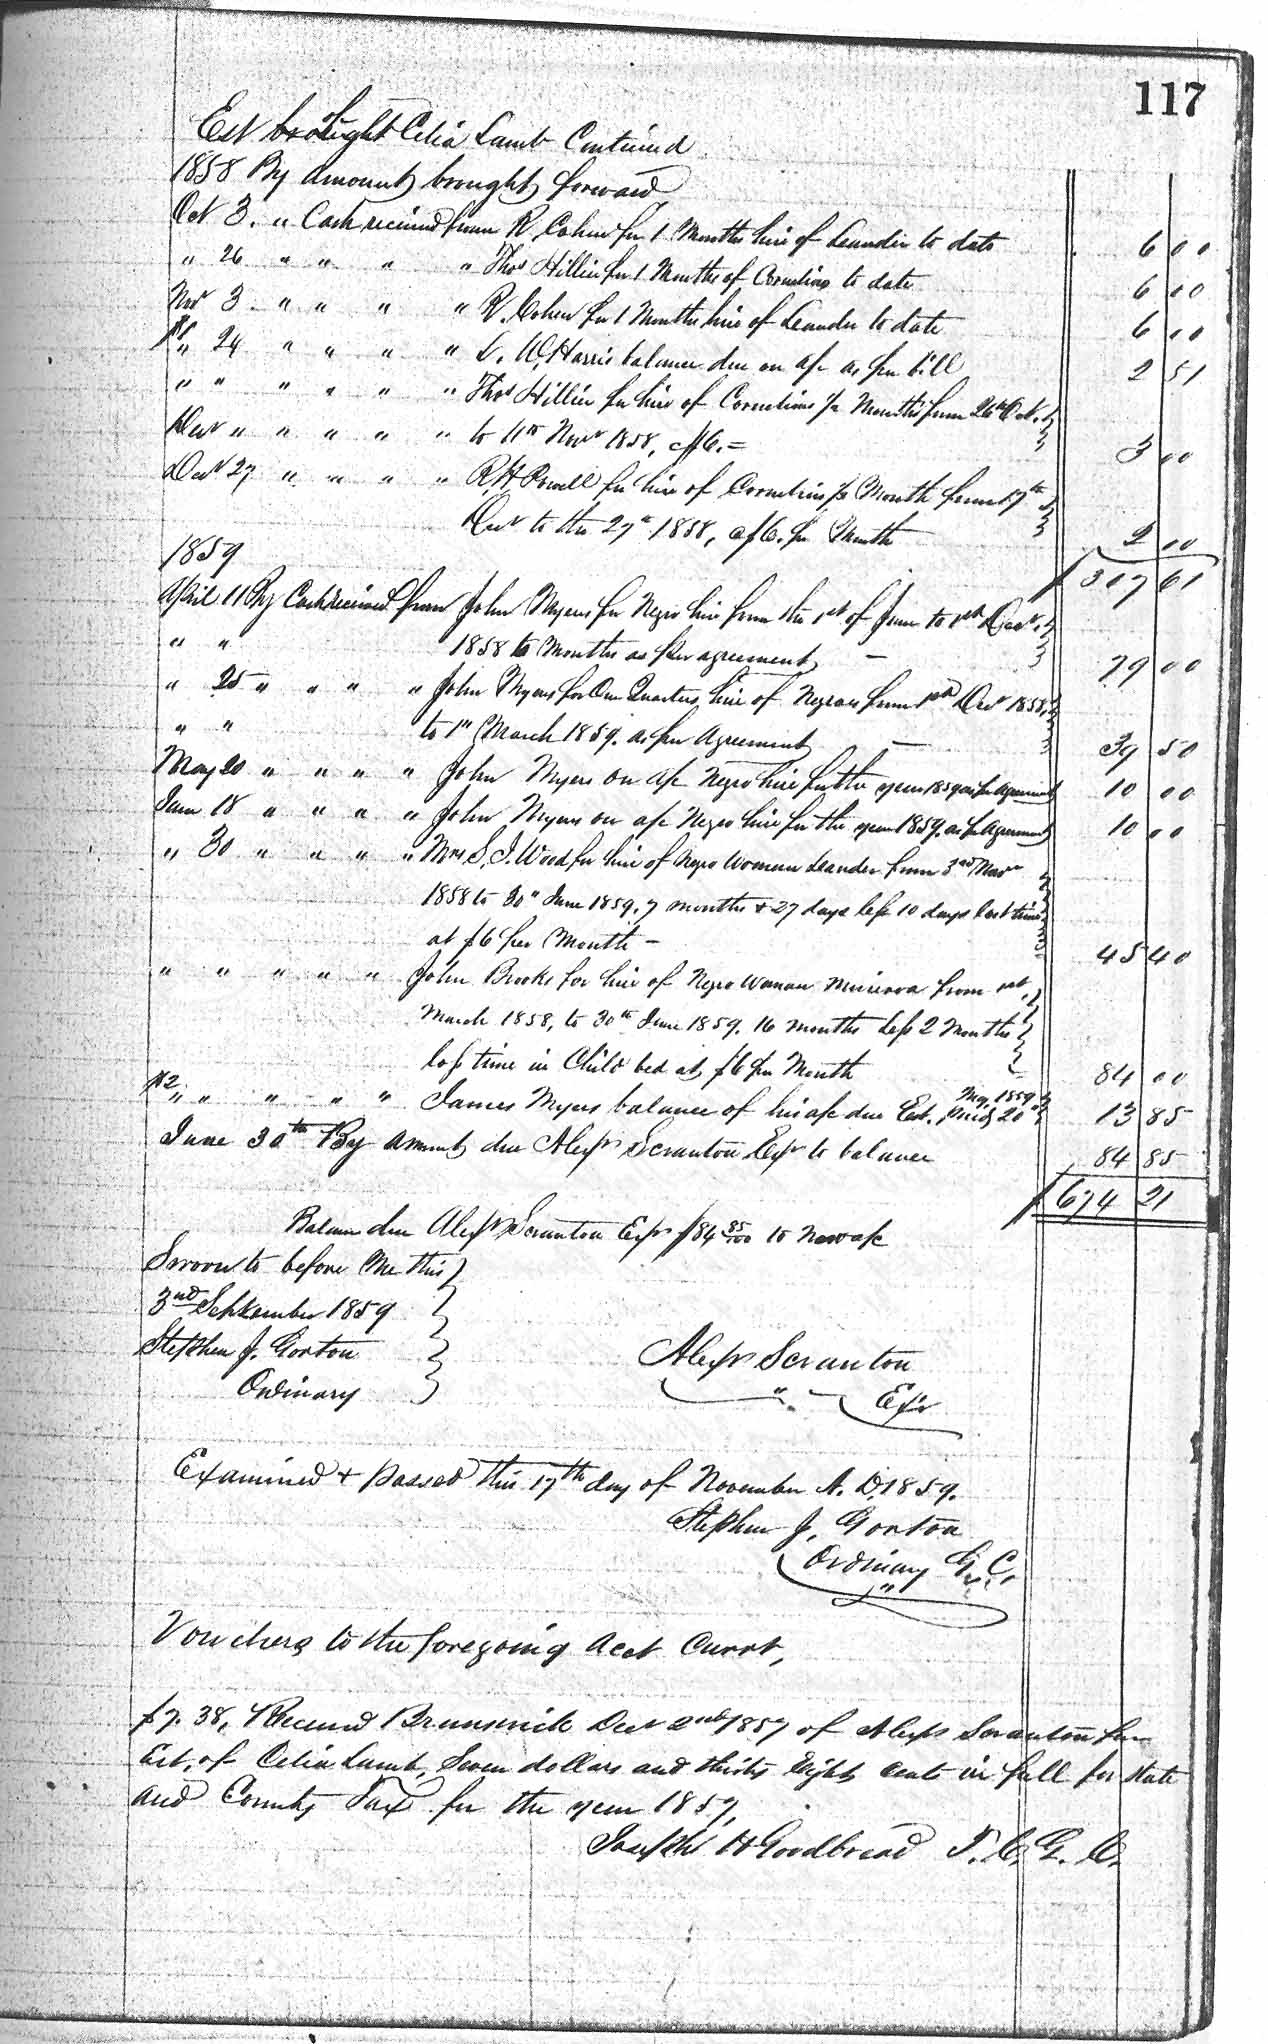 117
Est Celia Lamb Continued
1858 By amount brought forward
Oct 3. " Cash received from R Cohen for 1 Months hire of Leander to date 6 00
" 26 " " " " Thos Hillier for 1 Months of Cornelius to date 6 00
Novr 3 " " " " R. Cohen for 1 Months hire of Leander to date 6 00
" 24 " " " " W. Harris balance due on a/c as per bill 2 51
" " " " " " Thos Hillier for hire of Cornelius ½ Months from 26th Oct.
" " " " " to 11th Novr 1858, @ $6.= 3 00
Decr 27 " " " " R. H. Powell for hire of Cornelius Month from 17th
Decr to the 27th 1858, @ $6. per Month 2 00
1859 $307 61
April 11 By Cash received from John Myers for Negro hire from the 1st of June to 1st Decr.
" " 1858 6 Months as per agreement — 79 00
" 25 " " " " John Myers for One Quarters hire of Negroes from 1st Decr 1858,
" " to 1st March 1859. as per Agreement — 39 50
May 20 " " " " John Myers on a/c Negro hire for the year 1859 as per Agreement 10 00
June 18 " " " " John Myers on a/c Negro hire for the year 1859. as per Agreement 10 00
" 30 " " " " Mrs S. J. Wood for hire of Negro Woman Leander from 3rd Novr
1858 to 30" June 1859. 7 months & 27 days less 10 days lost time
at $6 per Month – 45 40
" " " " " John Brooks for hire of Negro Woman Minerva from 1st
March 1858, to 30th June 1859. 16 months Less 2 Months
loss time in Child bed at $6 per Month 84 00
#2 " " " " " James Myers balance of his a/c due Est. paid May 20" 1859 13 85
June 30th By amount due Alexr Scranton Exr to balance 84 85
$674 21
Balance due Alexr Scranton Exr $84 85/100 to New a/c
Sworn to before Me this
3rd September 1859
Stephen J. Gorton
Ordinary
Alexr Scranton
Exr
Examined & passed this 17th day of November A. D. 1859.
Stephen J. Gorton
Ordinary G. C.
Vouchers to the foregoing Acct Currt,
$7.38, Received Brunswick Decr 2nd 1857 of Alexr Scranton for
Est. of Celia Lamb, Seven dollars and thirty Eight cents in full for State
and County Tax for the year 1857,
Joseph H Goodbread T. C. G. C.